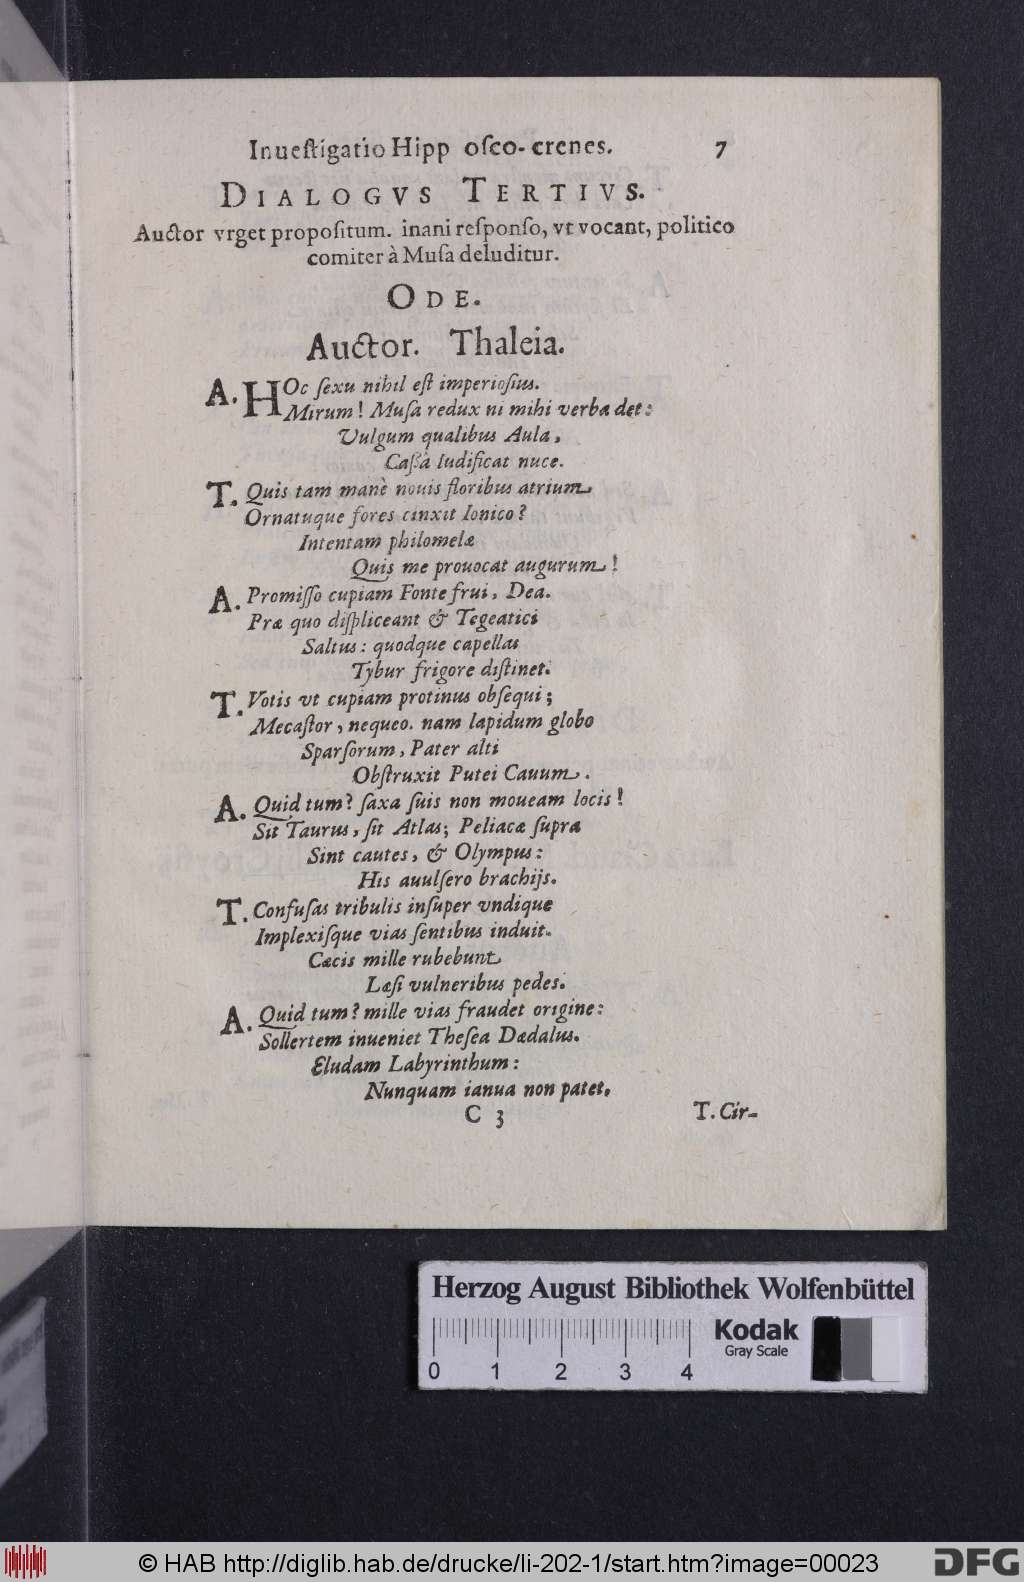 Inueſtigatio Hipp oſco-crenes. 7
DIALOGVS TERTIVS.
Auctor vrget propoſitum. inani reſponſo, vt vocant, politico
comiter à Muſa deluditur.
ODE.
Auctor. Thaleia.
A. HOc ſexu nihil eſt imperioſius.
Mirum! Muſa redux ni mihi verba det:
Vulgum qualibus Aula,
Caßâ ludificat nuce.
T. Quis tam manè nouis floribus atrium
Ornatuque fores cinxit Ionico?
Intentam philomelæ
Quis me prouocat augurum!
A. Promiſſo cupiam Fonte frui, Dea.
Præ quo diſpliceant & Tegeatici
Saltus: quodque capellas
Tybur frigore diſtinet.
T. Votis vt cupiam protinus obſequi;
Mecaſtor, nequeo. nam lapidum globo
Sparſorum, Pater alti
Obſtruxit Putei Cauum.
A. Quid tum? ſaxa ſuis non moueam locis!
Sit Taurus, ſit Atlas; Peliacæ ſupra
Sint cautes, & Olympus:
His auulſero brachijs.
T. Confuſas tribulis inſuper vndique
Implexiſque vias ſentibus induit.
Cæcis mille rubebunt
Læſi vulneribus pedes.
A. Quid tum? mille vias fraudet origine:
Sollertem inueniet Theſea Dædalus.
Eludam Labyrinthum:
Nunquam ianua non patet.
C 3 T. Cir-
Herzog August Bibliothek Wolfenbüttel
Kodak
Gray Scale
0 1 2 3 4
© HAB http://diglib.hab.de/drucke/li-202-1/start.htm?image=00023
DFG